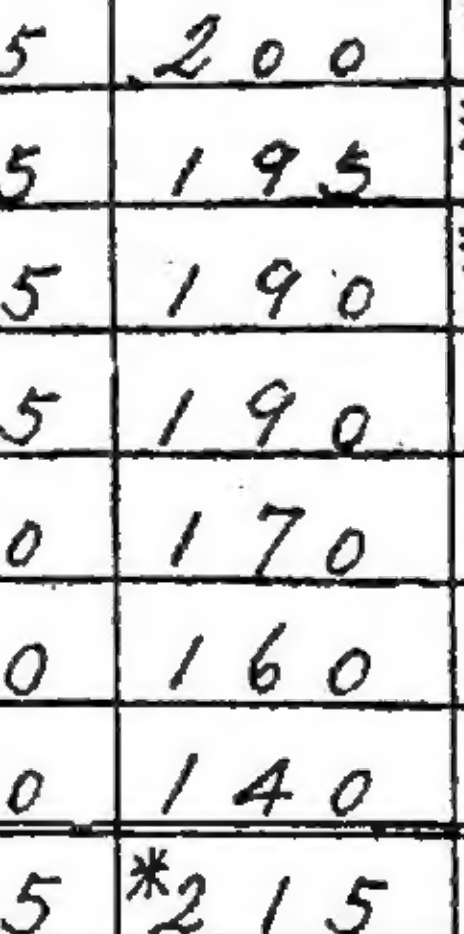 5 200
5 195
5 190
5 190
0 170
0 160
0 140
5 *215